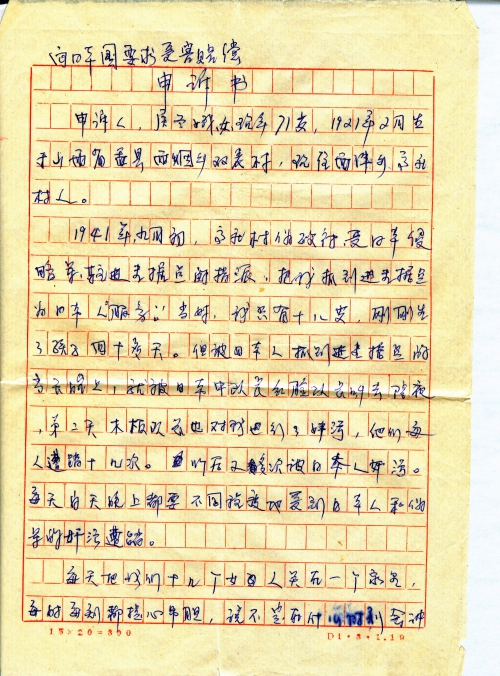 向日本国要求受害赔偿
申诉书
申诉人,周 女现年71岁,1921年2月生
于山西省盂县西烟乡双表村,现住西潘乡高
村人。
1941年九月初,高 村伪政府受日军侵
略军 进圭据点的指派,把我抓到进圭据点
为日军人"服务"。当时,我只有十八岁,刚刚生
了孩子四十多天。但被日军人抓到进圭据点的
当天晚上,就被日军中队长和 队长叫去陪夜
,第二天木板队长也对我进行了奸污,他们每
人遭踏十几次。 后又多次被日本人奸污。
每天白天晚上都要不同程度地受到日军人和伪
军的奸污遭踏。
每天把我们十几个女人关在一个 ,
每时每刻都提心吊胆,说不定在什么时刻会冲
15×20=300